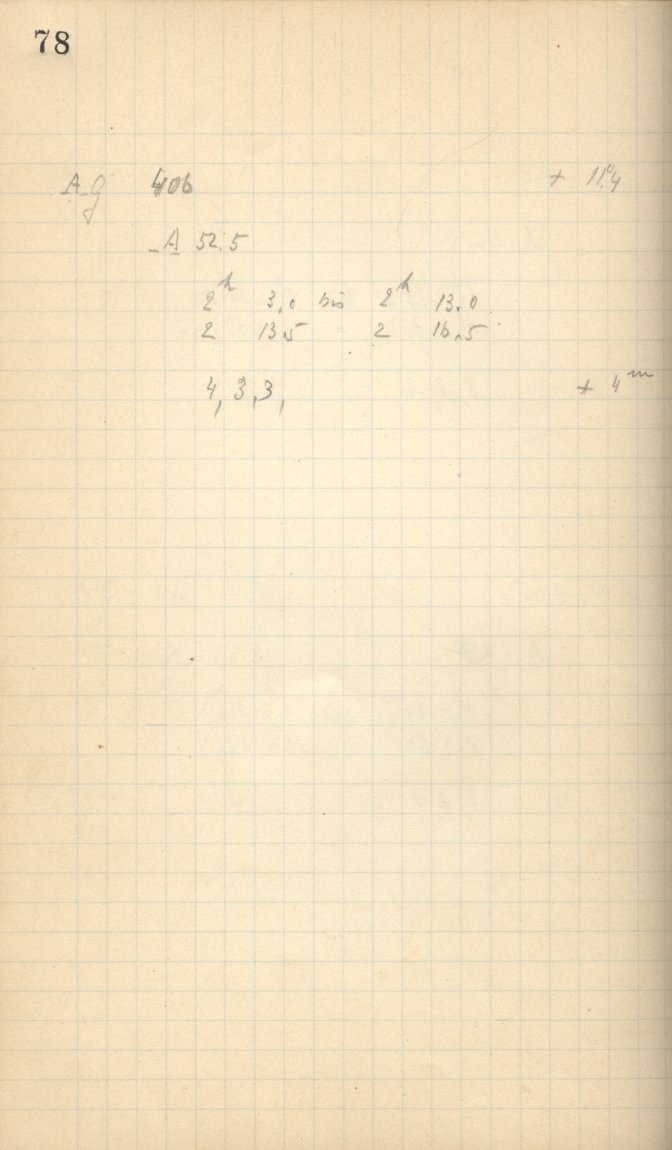 78
A g 406 + 11°.4
A 52.5
2h 3.0 bis 2h 13.0
2 13.5 2 16.5
4, 3, 3, + 4m